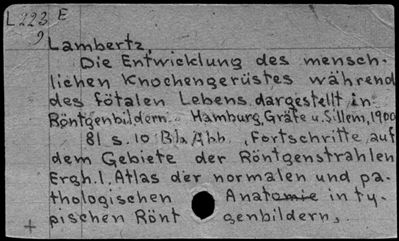 L 223 E
9
Lambertz,
Die Entwicklung des mensch-
lichen Knochengerüstes während
des fötalen Lebens dargestellt in
Röntgenbildern. Hamburg, Gräfe u. Sillem, 1900
81 S. 10 Bl. Abb. „Fortschritte auf
dem Gebiete der Röntgenstrahlen
Ergh. 1. Atlas der normalen und pa-
thologischen Anatomie in ty-
pischen Röntgenbildern„
+